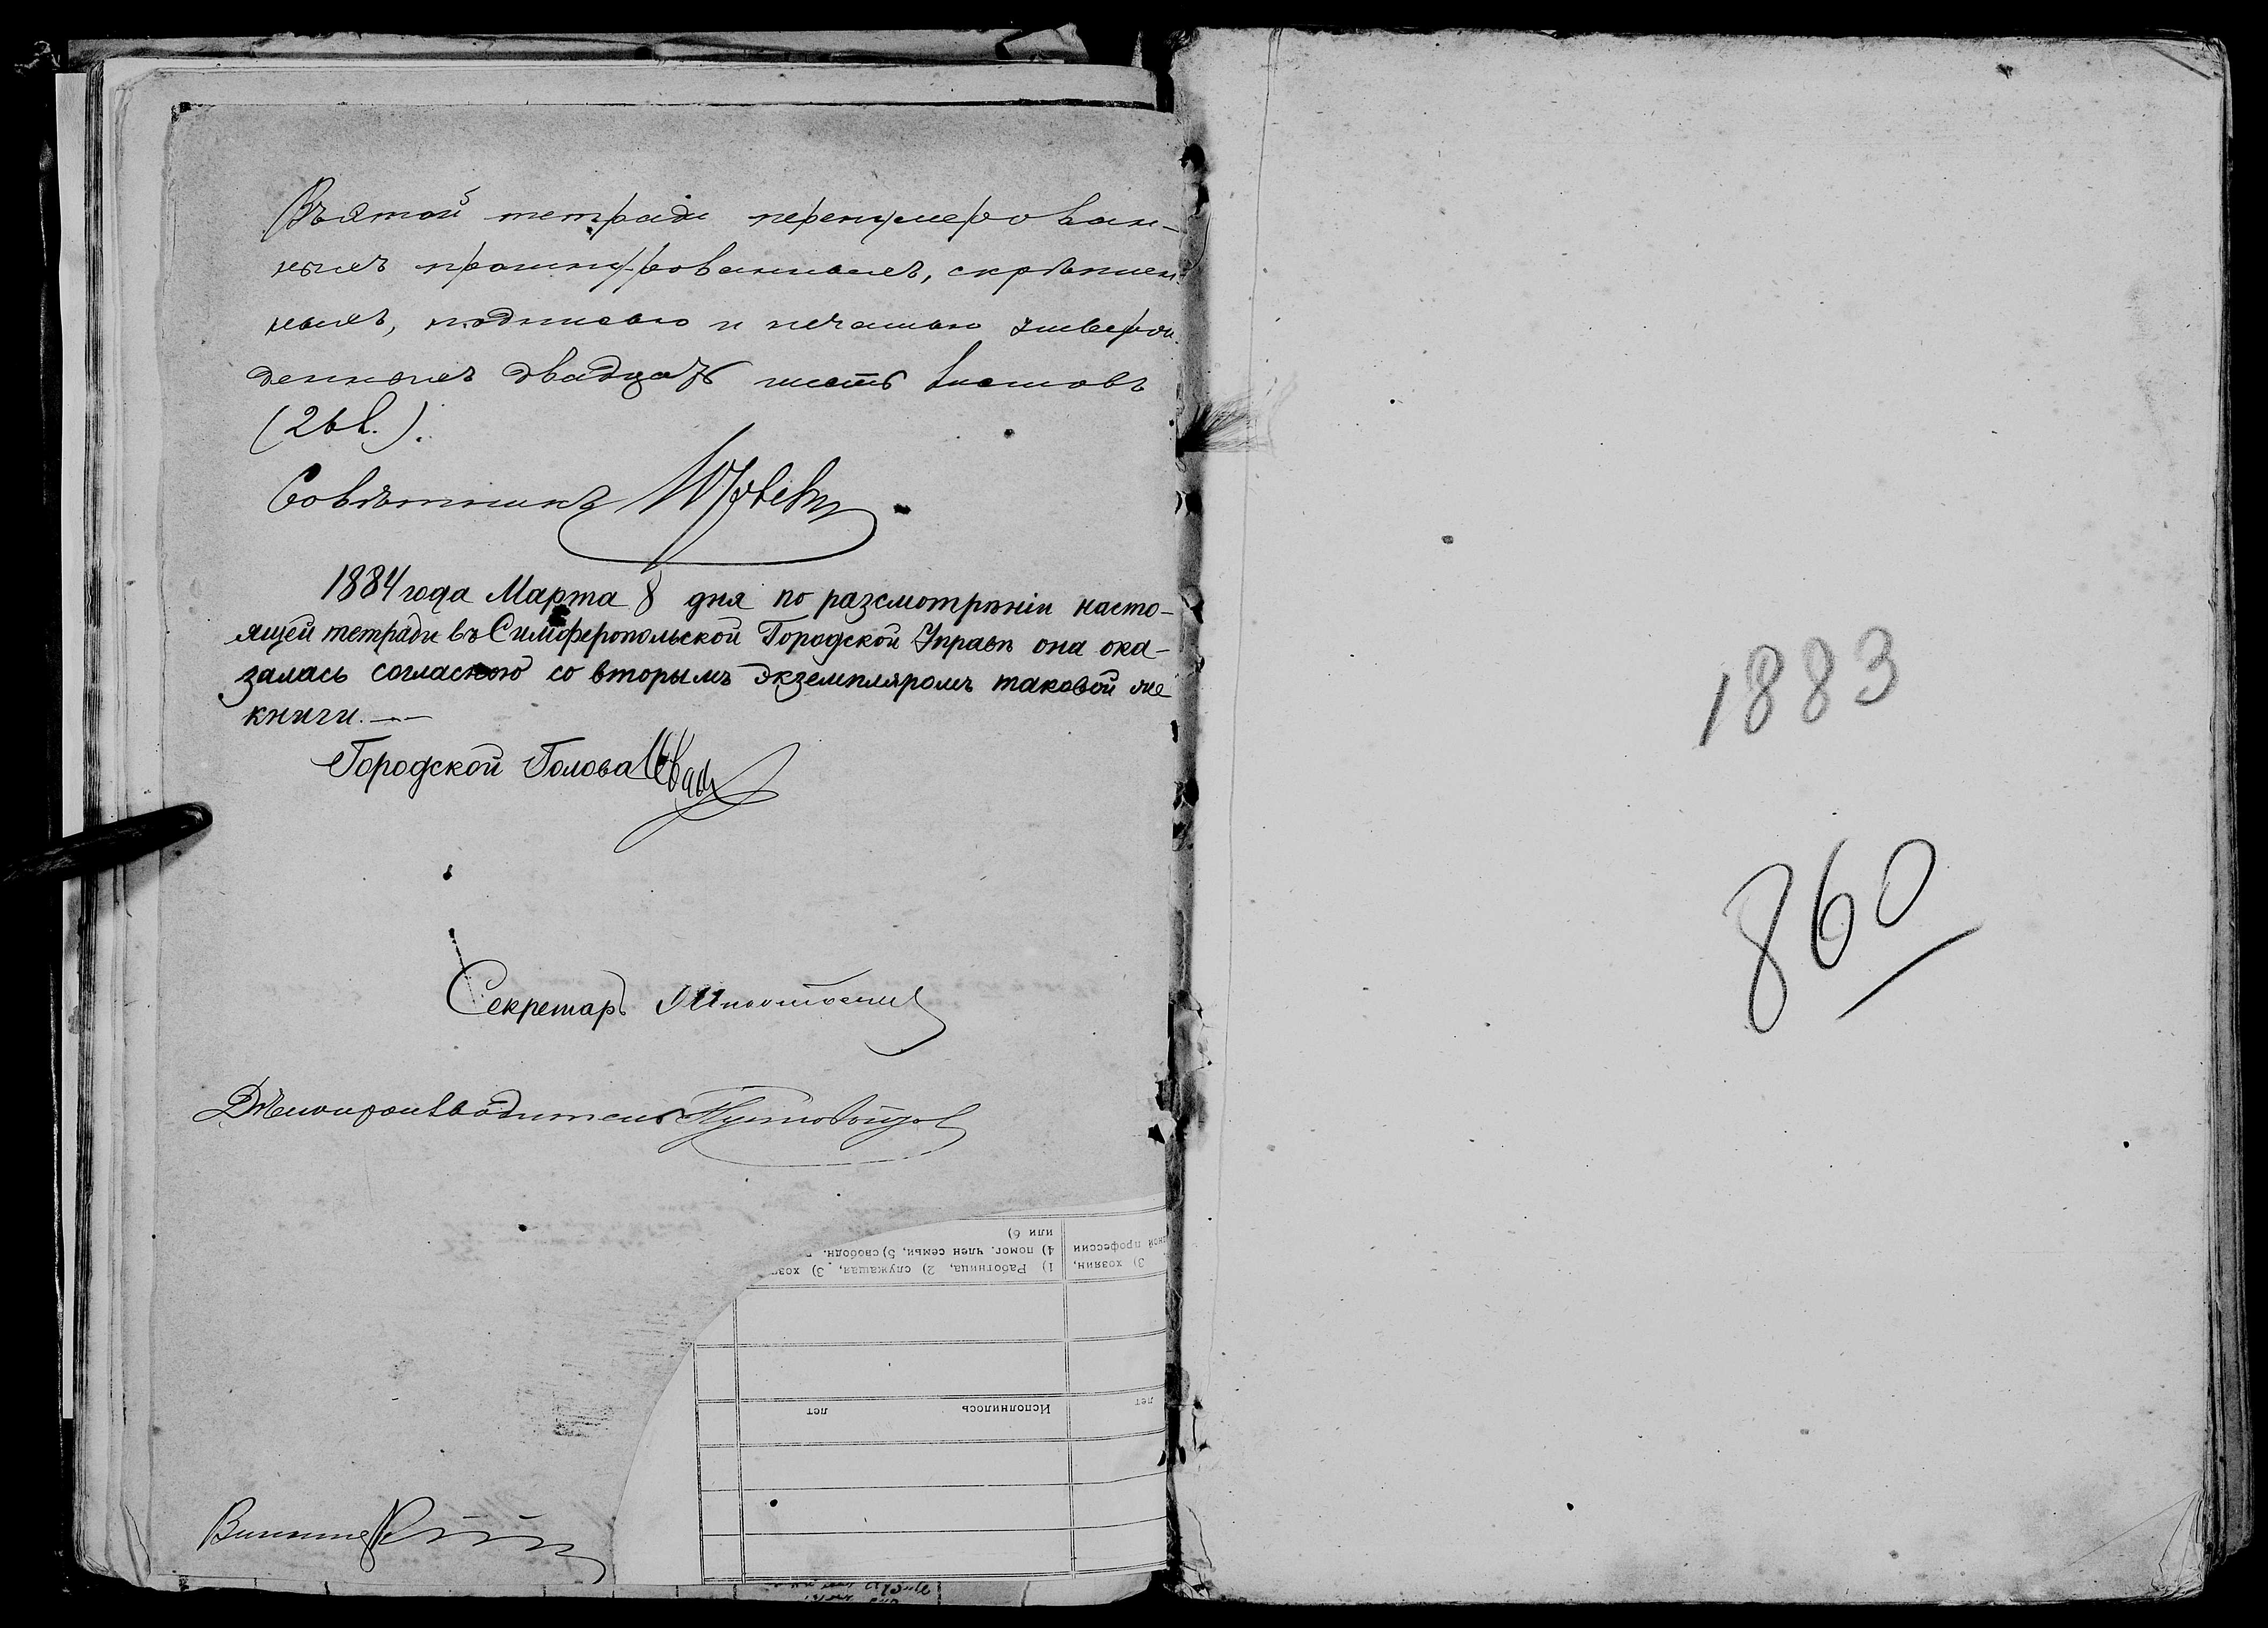 Въ этой тетради перенумерован-
ныхъ прошнурованныхъ, скрѣплен-
ныхъ, подписью и печатью утверж-
денныхъ двадцать шесть листовъ
(26 л.).
Совѣтникъ
1884 года Марта 8 дня по разсмотрѣніи насто-
ящей тетради въ Симферопольской Городской Управѣ она ока-
залась согласною со вторымъ экземпляромъ таковой же
книги.—
Городской Голова
Секретарь
Дѣлопроизводитель
или 6)
4) помог. член семьи, 5) свободн.
1) Работница, 2) служащая, 3) хозя
ной профессии
3) хозяин,
Исполнилось лет
лет
1883
860